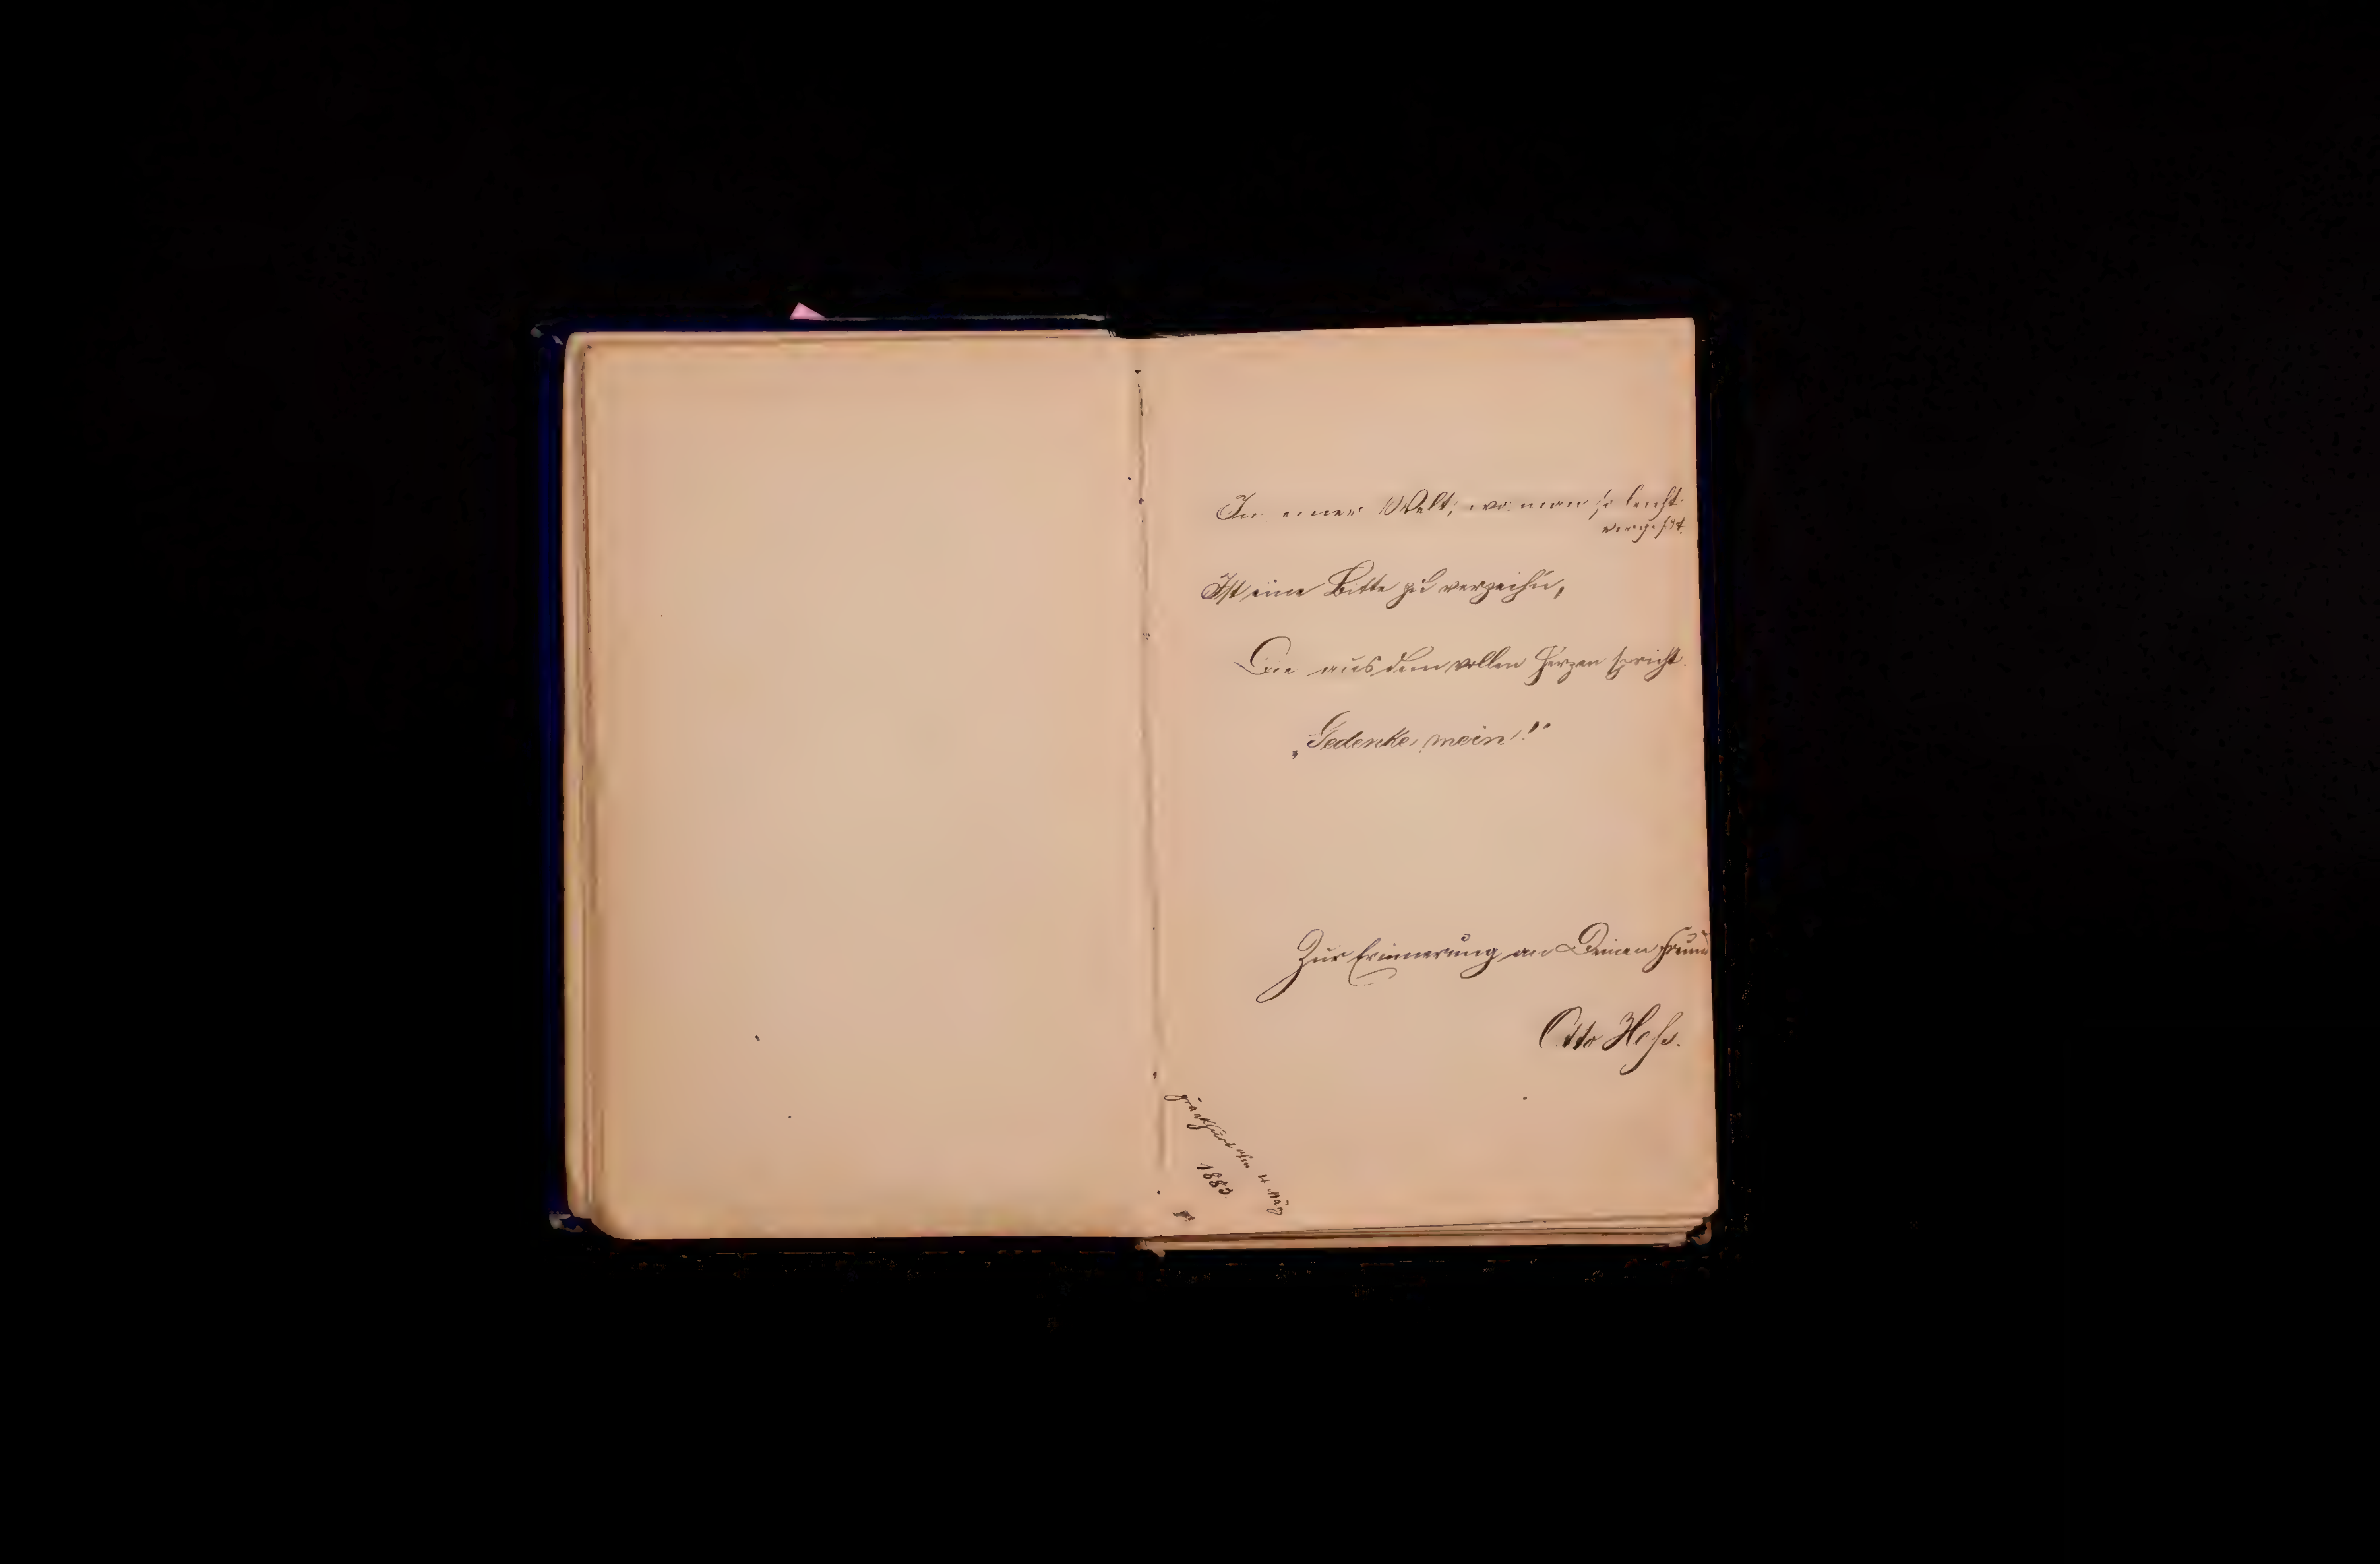 In einer Welt, wo man so leicht
vergißt,
Ist eine Bitte zu verzeihn,
Die aus dem vollen Herzen spricht
„Gedenke mein!"
Zur Erinnerung an Deinen Freund
Otto Hess.
Frankfurt a/m 4 März
1883.